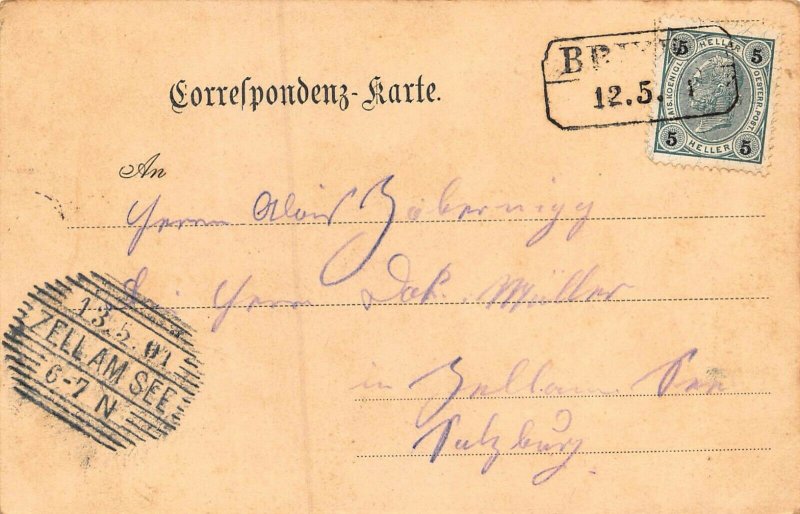 BRIX
12.5.
5 HELLER 5
KAIS.KOENIGL. OESTERR.POST.
5 HELLER 5
Correſpondenz-Karte.
An
Herrn Alois Zabernigg
Herrn Dok. Müller
in Zell am See
Salzburg
13.5.01
ZELL AM SEE
6-7 N